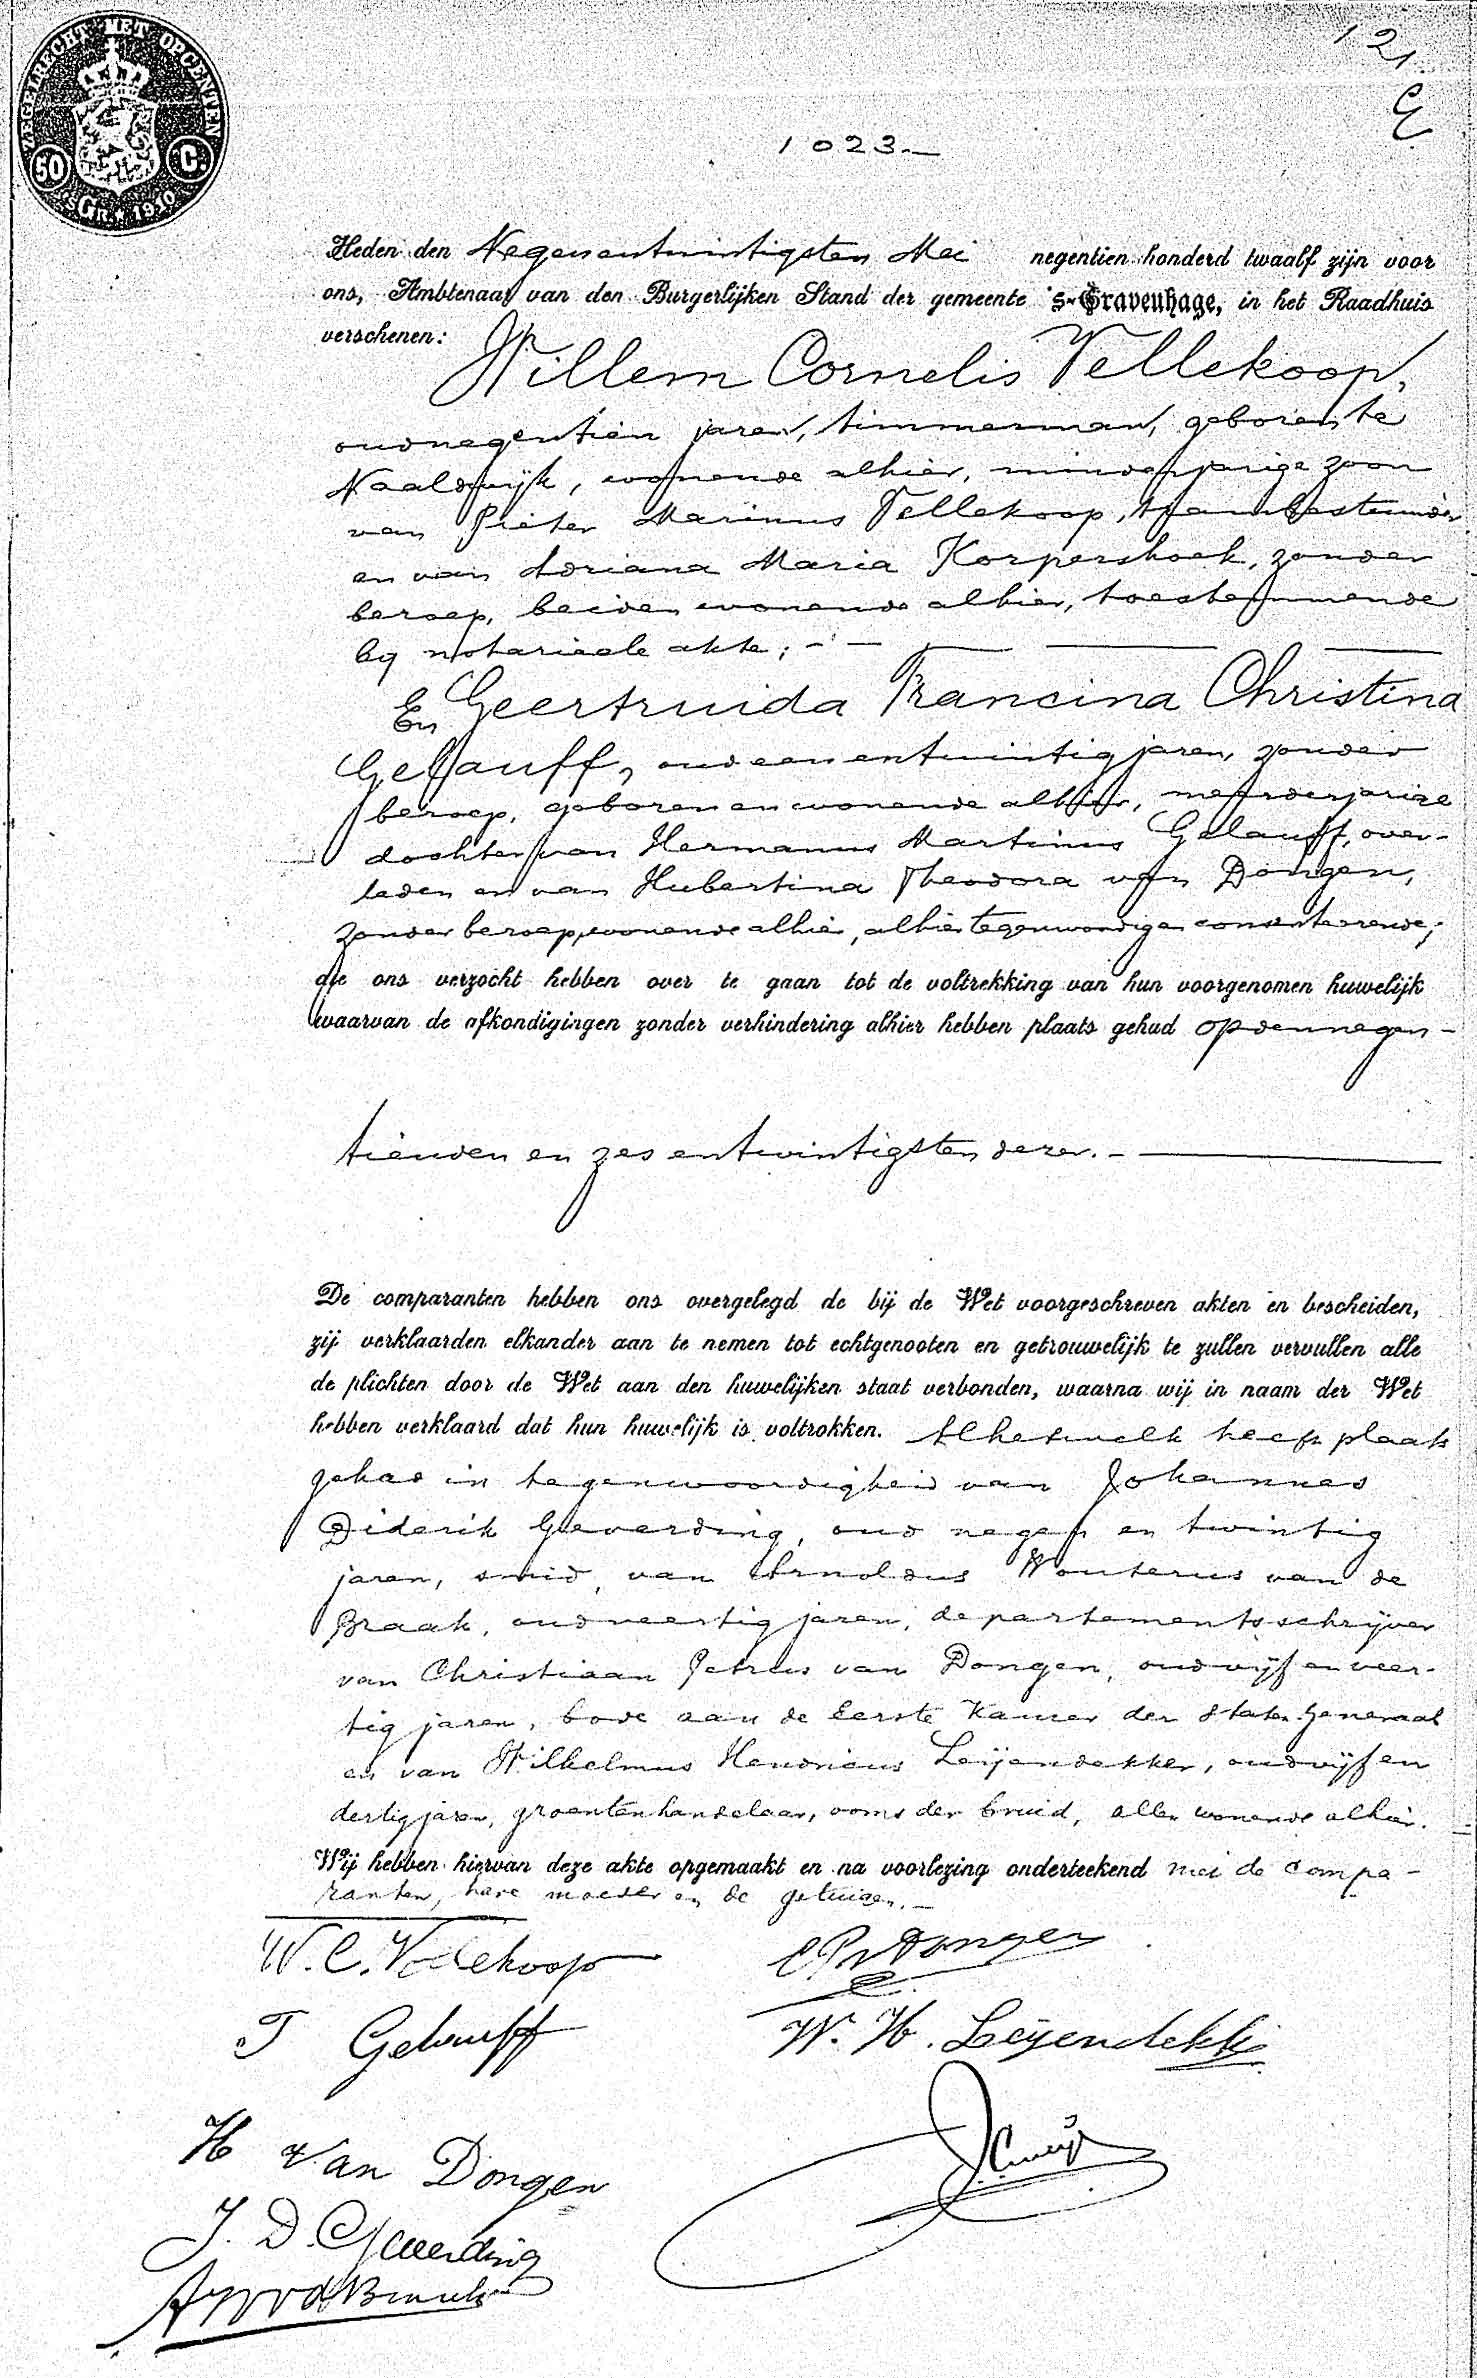 ZEGELRECHT MET OPCENTEN
50 C.
'sGR. * 1910
121
E
1023.—
Heden den Negenentwintigsten Mei negentien honderd twaalf zijn voor
ons, Ambtenaar van den Burgerlijken Stand der gemeente 's-Gravenhage, in het Raadhuis
verschenen:
Willem Cornelis Vellekoop,
oud negentien jaren, timmerman, geboren te
Naaldwijk, wonende alhier, minderjarige zoon
van Pieter Marinus Vellekoop, trambestuurder
en van Adriana Maria Korpershoek, zonder
beroep, beiden wonende alhier, toestemmende
bij notarieele akte; - —
En Geertruida Francina Christina
Gelauff, oud eenentwintig jaren, zonder
beroep, geboren en wonende alhier, meerderjarige
dochter van Hermanus Martinus Gelauff, over-
leden en van Hubertina Theodora van Dongen,
zonder beroep, wonende alhier, alhier tegenwoordig en consenteerende;
die ons verzocht hebben over te gaan tot de voltrekking van hun voorgenomen huwelijk
waarvan de afkondigingen zonder verhindering alhier hebben plaats gehad op den negen-
tienden en zesentwintigsten dezer. -
De comparanten hebben ons overgelegd de bij de Wet voorgeschreven akten en bescheiden,
zij verklaarden elkander aan te nemen tot echtgenooten en getrouwelijk te zullen vervullen alle
de plichten door de Wet aan den huwelijken staat verbonden, waarna wij in naam der Wet
hebben verklaard dat hun huwelijk is voltrokken. Alhetwelk heeft plaats
gehad in tegenwoordigheid van Johannes
Diderik Geverding, oud negen en twintig
jaren, smid, van Arnoldus Wouterus van de
Braak, oud veertig jaren, departementsschrijver
van Christiaan Petrus van Dongen, oud vijf en veer-
tig jaren, bode aan de Eerste Kamer der Staten Generaal
en van Wilhelmus Hendricus Leijendekker, oud vijf en
dertig jaren, groentenhandelaar, ooms der bruid, allen wonende alhier.
Wij hebben hiervan deze akte opgemaakt en na voorlezing onderteekend met de compa-
ranten, hare moeder en de getuigen. —
W. C. Vellekoop
C P v Dongen
T Gelauff
W. H. Leijendekker
H van Dongen
J. D. Geverding
A W v d Braak